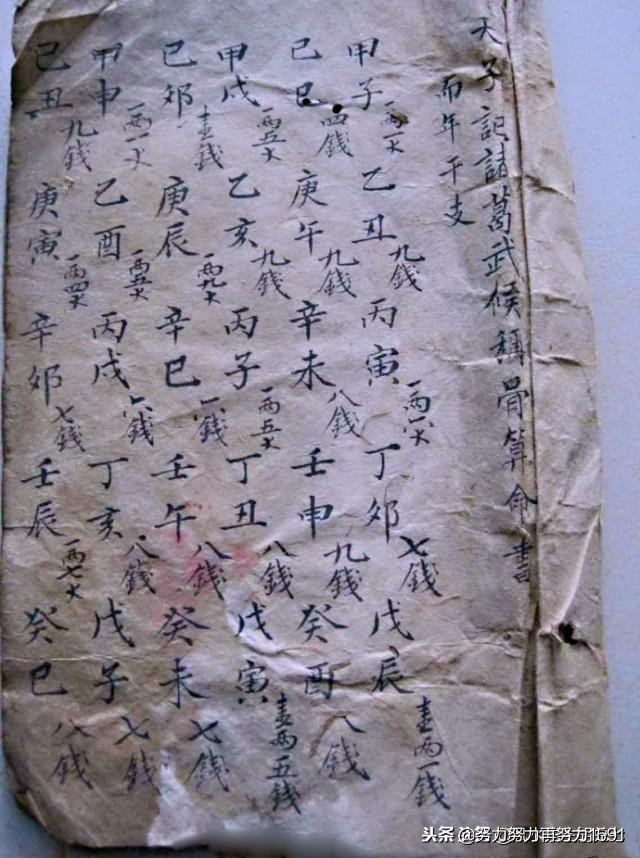 天子記諸葛武候稱骨算命書
而年干支
甲子 乙丑 九錢 丙寅 丁夘 七錢 戊辰 壹两一錢
己巳 四錢 庚午 九錢 辛未 八錢 壬申 九錢 癸酉 八錢
甲戌 一两五 乙亥 九錢 丙子 一两五 丁丑 八錢 戊寅 壹两五錢
己夘 壹錢 庚辰 一两九 辛巳 錢 壬午 八錢 癸未 七錢
甲申 一两一 乙酉 一两五 丙戌 六錢 丁亥 八錢 戊子 七錢
己丑 九錢 庚寅 一两四 辛夘 七錢 壬辰 一两七 癸巳 八錢
头条 @努力努力再努力lh591